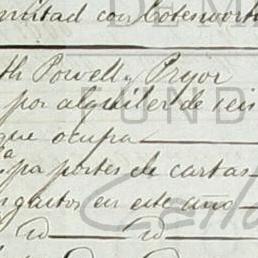 mitad con Cotesworth
th Powell y Pryor
por alquiler de seis
que ocupa
pa portes de cartas
gastos en este año
id id